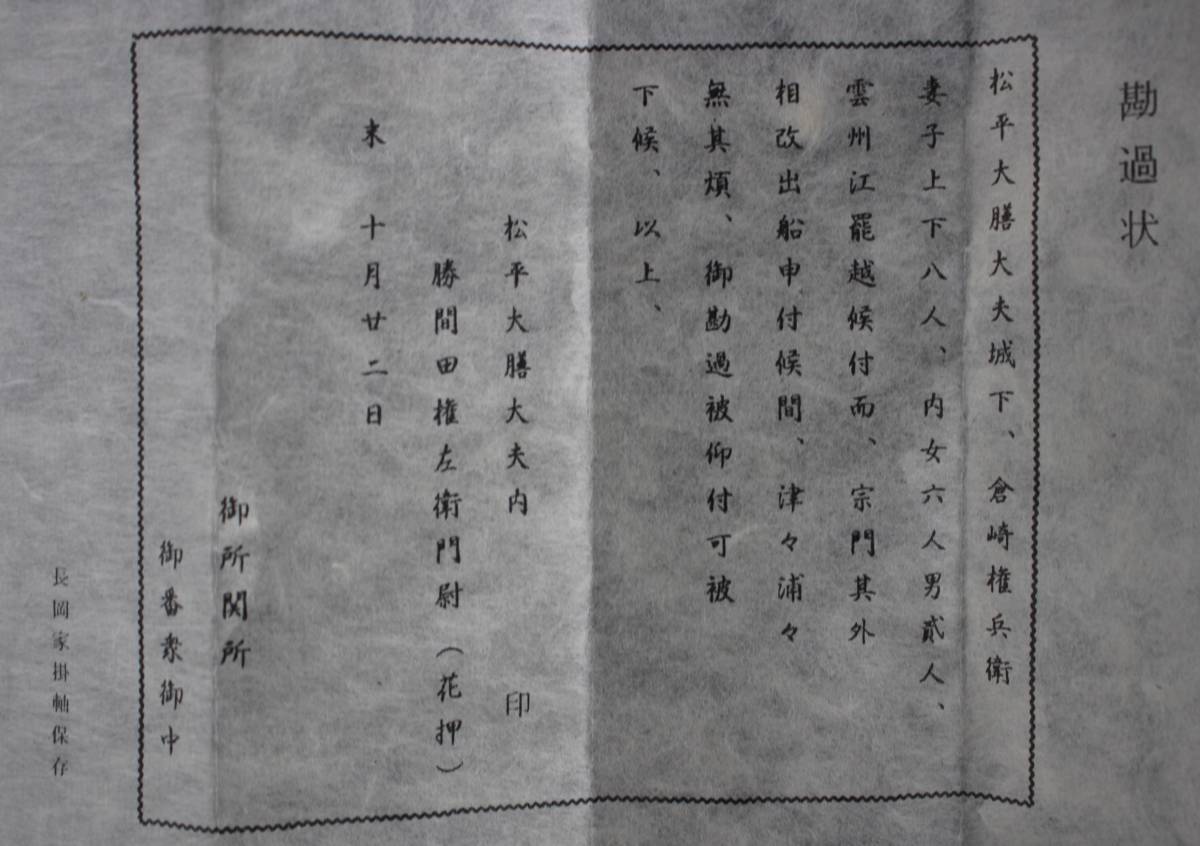 勘過状
松平大膳大夫城下、倉崎権兵衛
妻子上下八人、内女六人男貳人、
雲州江罷越候付而、宗門其外
相改出船申付候間、津々浦々
無其煩、御勘過被仰付可被
下候、以上、
松平大膳大夫内 印
勝間田権左衛門尉(花押)
未 十月廿二日
御所関所
御番衆御中
長岡家掛軸保存